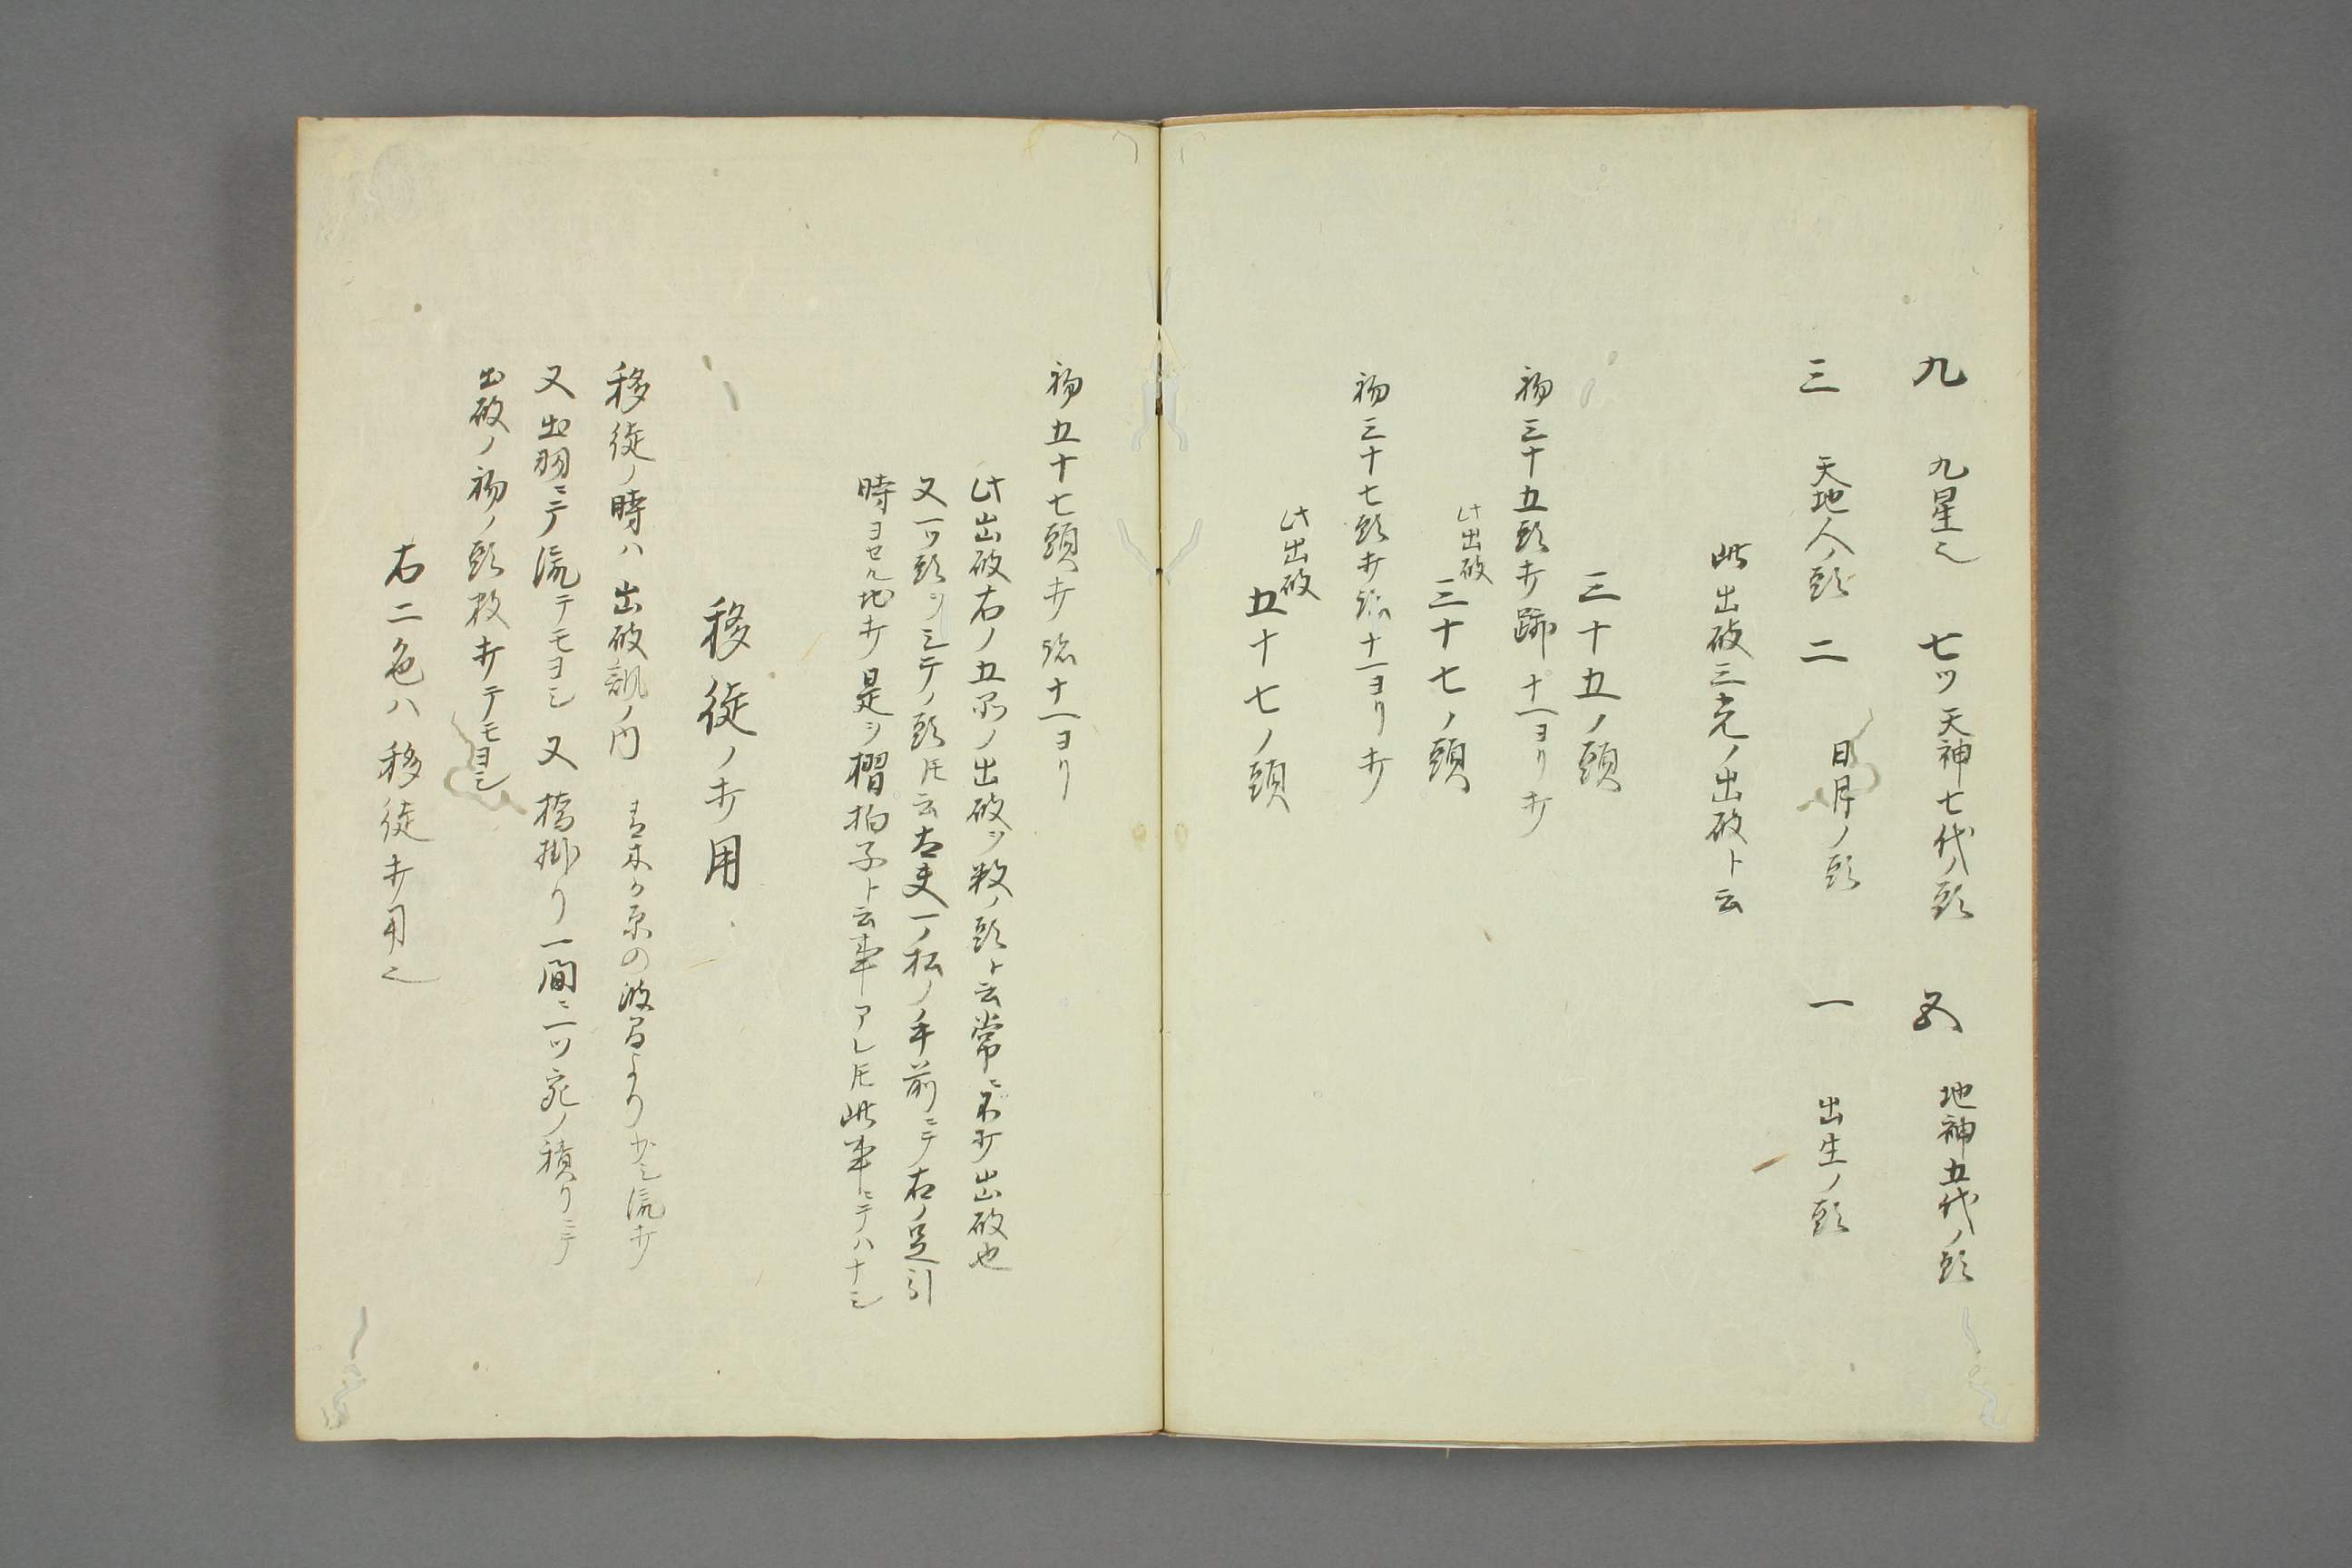 九 九星也 七ツ 天神七代ノ頭 五 地神五代ノ頭
三 天地人ノ頭 二 日月ノ頭 一 出生ノ頭
此出破三光ノ出破ト云
三十五ノ頭
初三十五頭打跡十一ヨリ打
此出破
三十七ノ頭
初三十七頭打跡十一ヨリ打
此出破
五十七ノ頭
初五十七頭打跡十一ヨリ
此出破右ノ五ノ出破ヲ数ノ頭ト云常ニ不打出破也
又一ツ頭ヲシテノ頭トモ云太夫一ノ松ノ手前ニテ右ノ足引
時ヨセル地打是ヲ摺拍子ト云事アレトモ此事ニテハナシ
移徙ノ打用
移徙ノ時ハ出破謡ノ内 青木か原の波間より少シ流打
又出羽ニテ流テモヨシ又橋掛リ一間ニ一ツ宛ノ積リニテ
出破ノ初ノ頭数打テモヨシ
右二色ハ移徙打用也